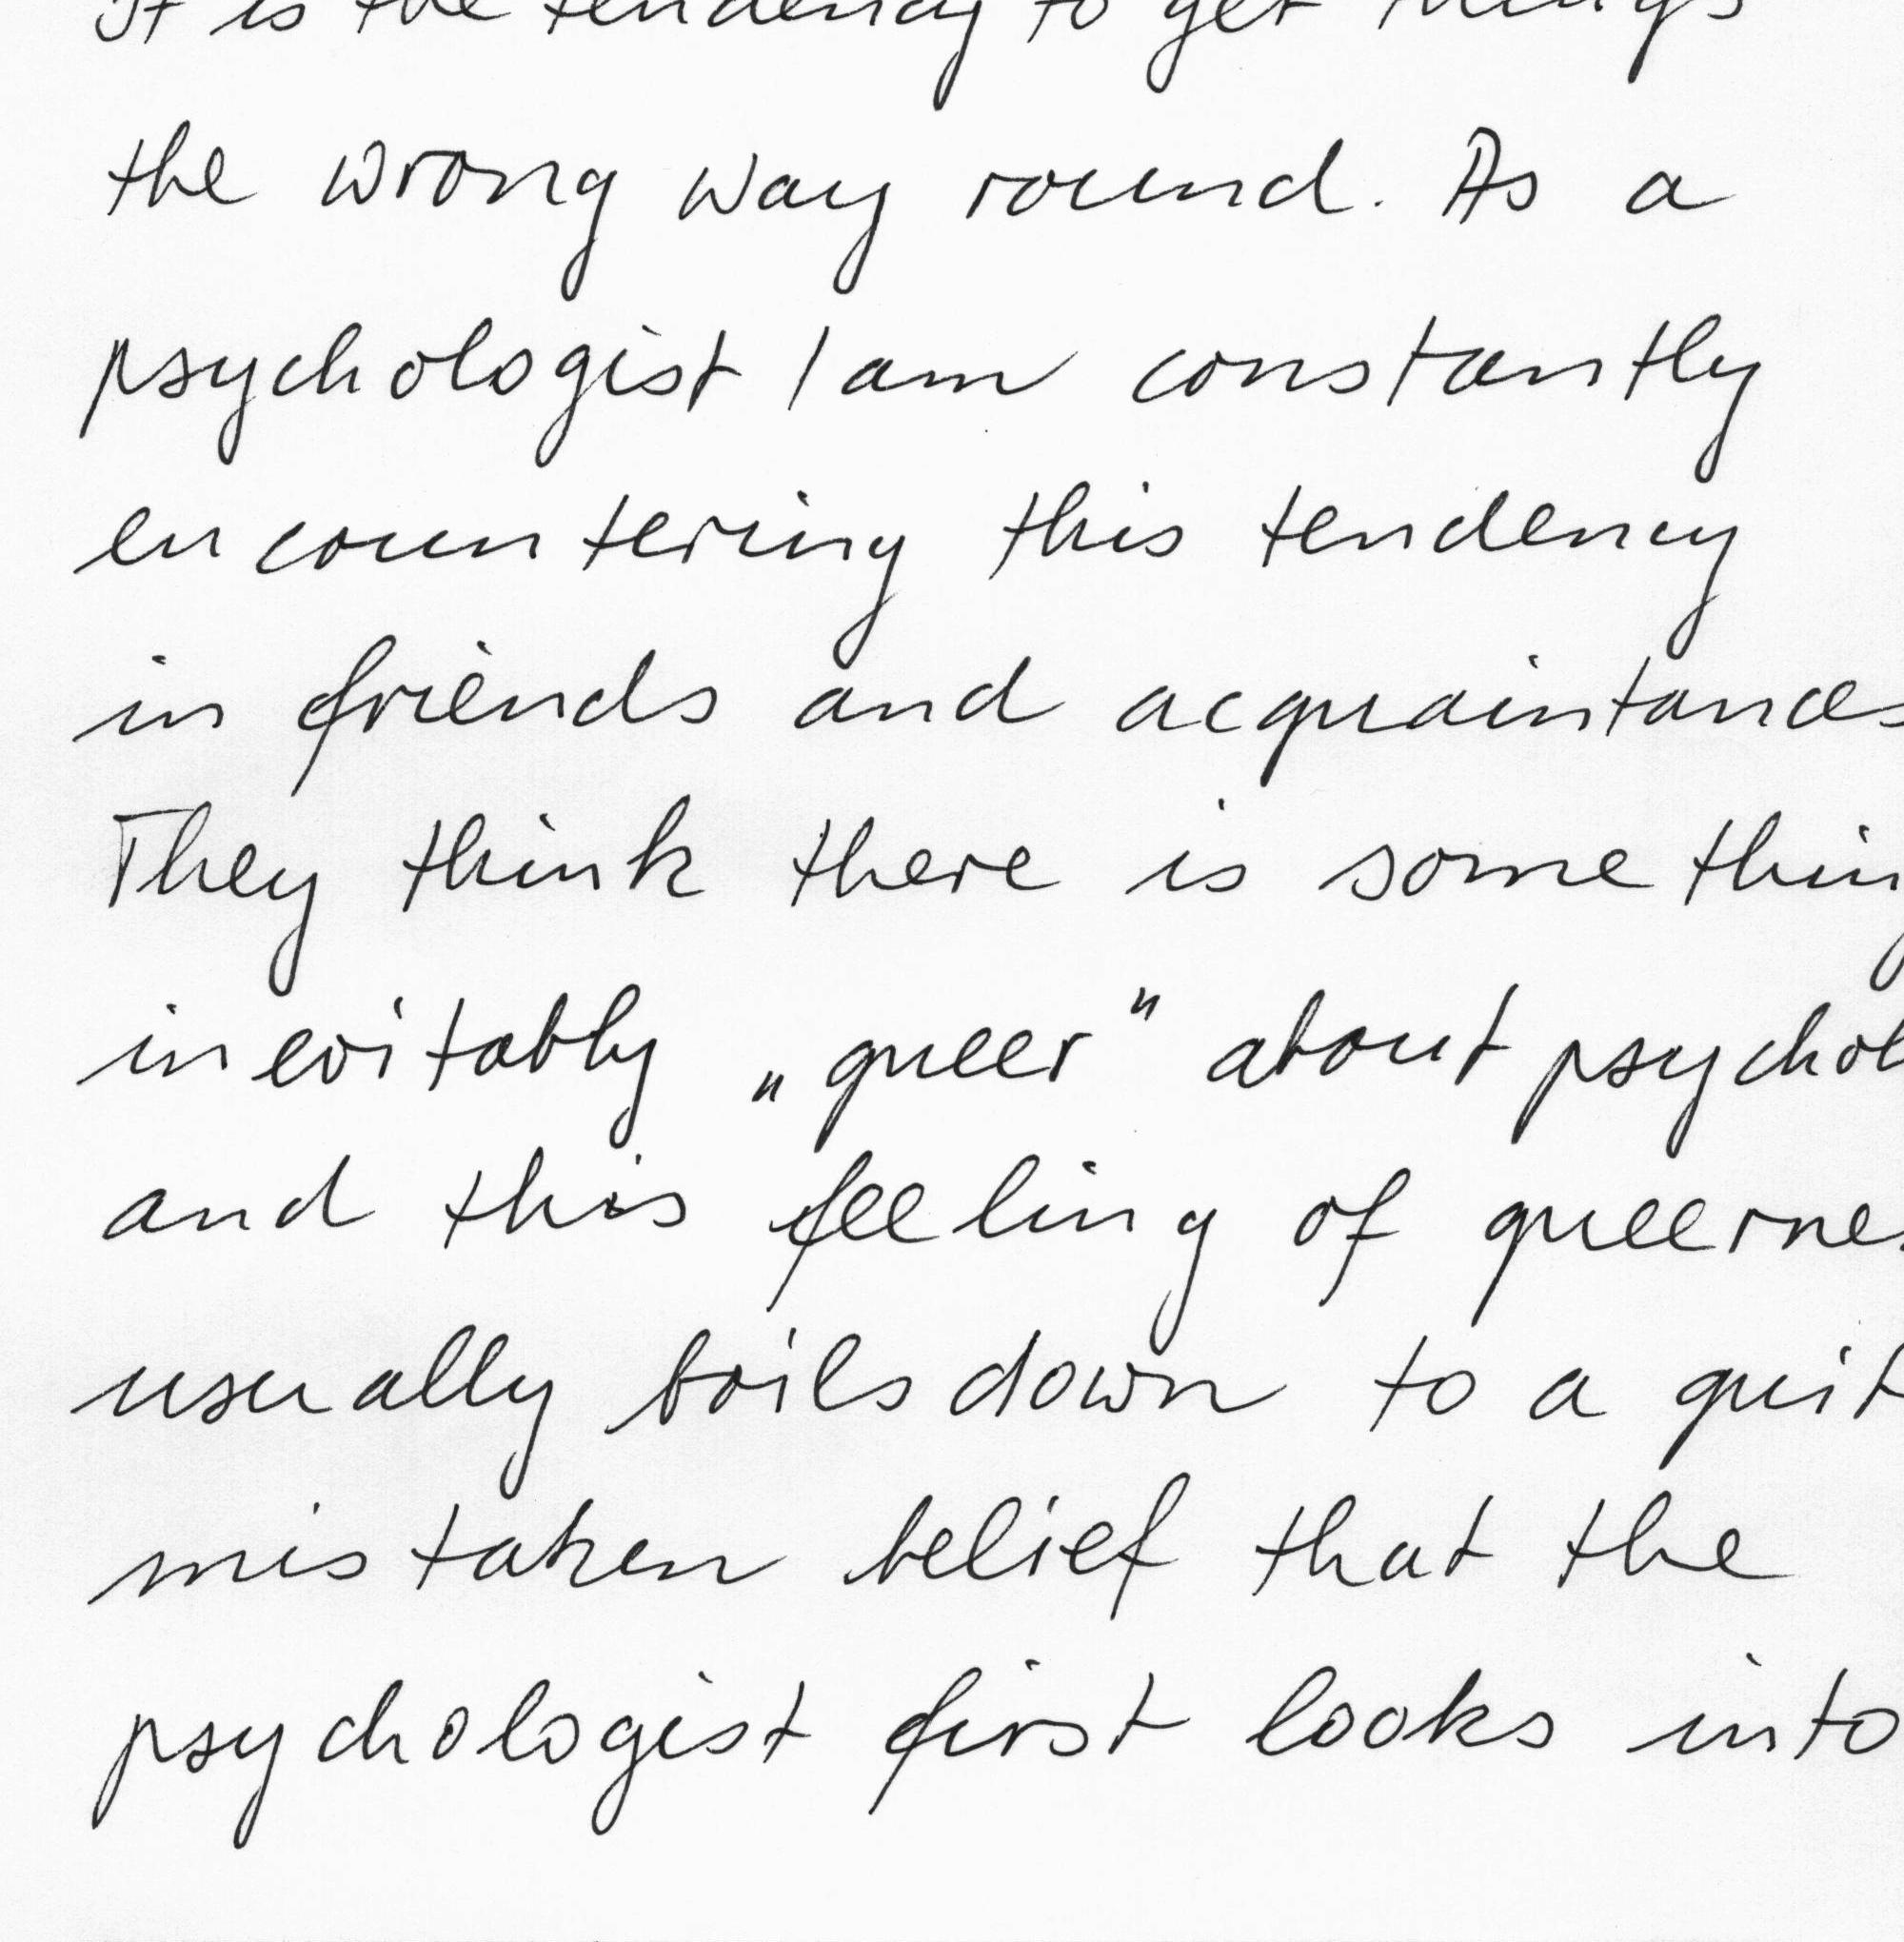 It is the tendency to get things
the wrong way round. As a
psychologist I am constantly
encountering this tendency
in friends and acquaintances
They think there is somethin
inevitably „queer" about psychol
and this feeling of queernes
usually boils down to a quit
mistaken belief that the
psychologist first looks into